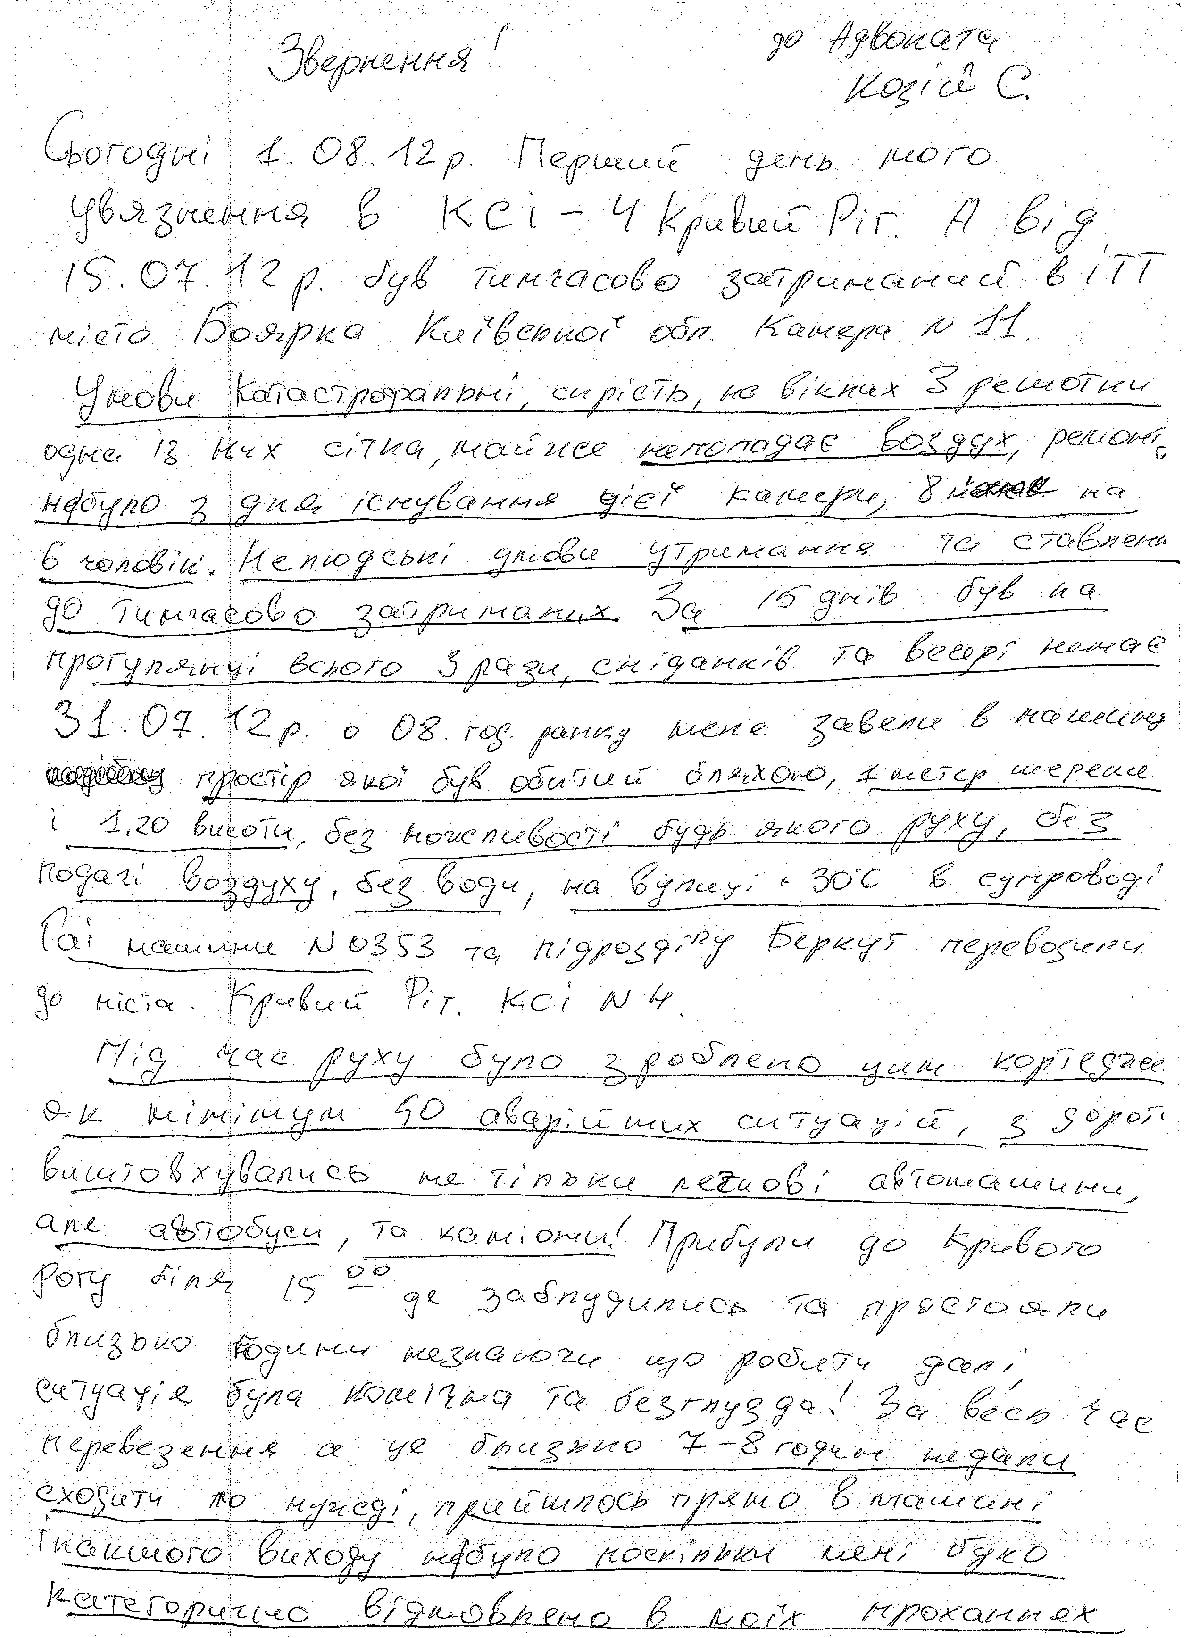 Звернення!
до Адвоката
Козій С.
Сьогодні 1.08.12р. Перший день мого
увязнення в КСІ-4 Кривий Ріг. А від
15.07.12р. був тимчасово затриманий в ІТТ
місто Боярка Київської обл. Камера N 11.
Умови катастрофальні, сирість, на вікнах 3 решотки
одна із них сітка, майже непопадає воздух, ремонт
небуло з дня існування цієї камери, 8 на
6 чоловік. Нелюдські умови утримання та ставлення
до тимчасово затриманих. За 15 днів був на
прогулянці всього 3 рази, сніданків та вечері немає
31.07.12р. о 08.год. ранку мене завели в машину
простір якої був обитий бляхою, 1 метер ширени
і 1,20 висоти, без можливості будь якого руху, без
подачі воздуху, без води, на вулиці +30°С в супроводі
Гаї машини N 0353 та підрозділу Беркут перевозили
до міста. Кривий Ріг. КСІ N 4.
Під час руху було зроблено цим кортеджее
як мінімум 40 аварійних ситуацій, з дороги
виштовхувались не тільки легкові автомашини,
але автобуси, та каміони! Прибули до Кривого
Рогу біля 15 00 де заблудились та простояли
близько години незнаючи що робити далі,
ситуація була комічна та безглузда! За весь час
перевезення а це близько 7-8 годин недали
сходити по нужді, прийшлось прямо в машині
інакшого виходу небуло поскільки мені було
категорично відмовлено в моїх проханнях